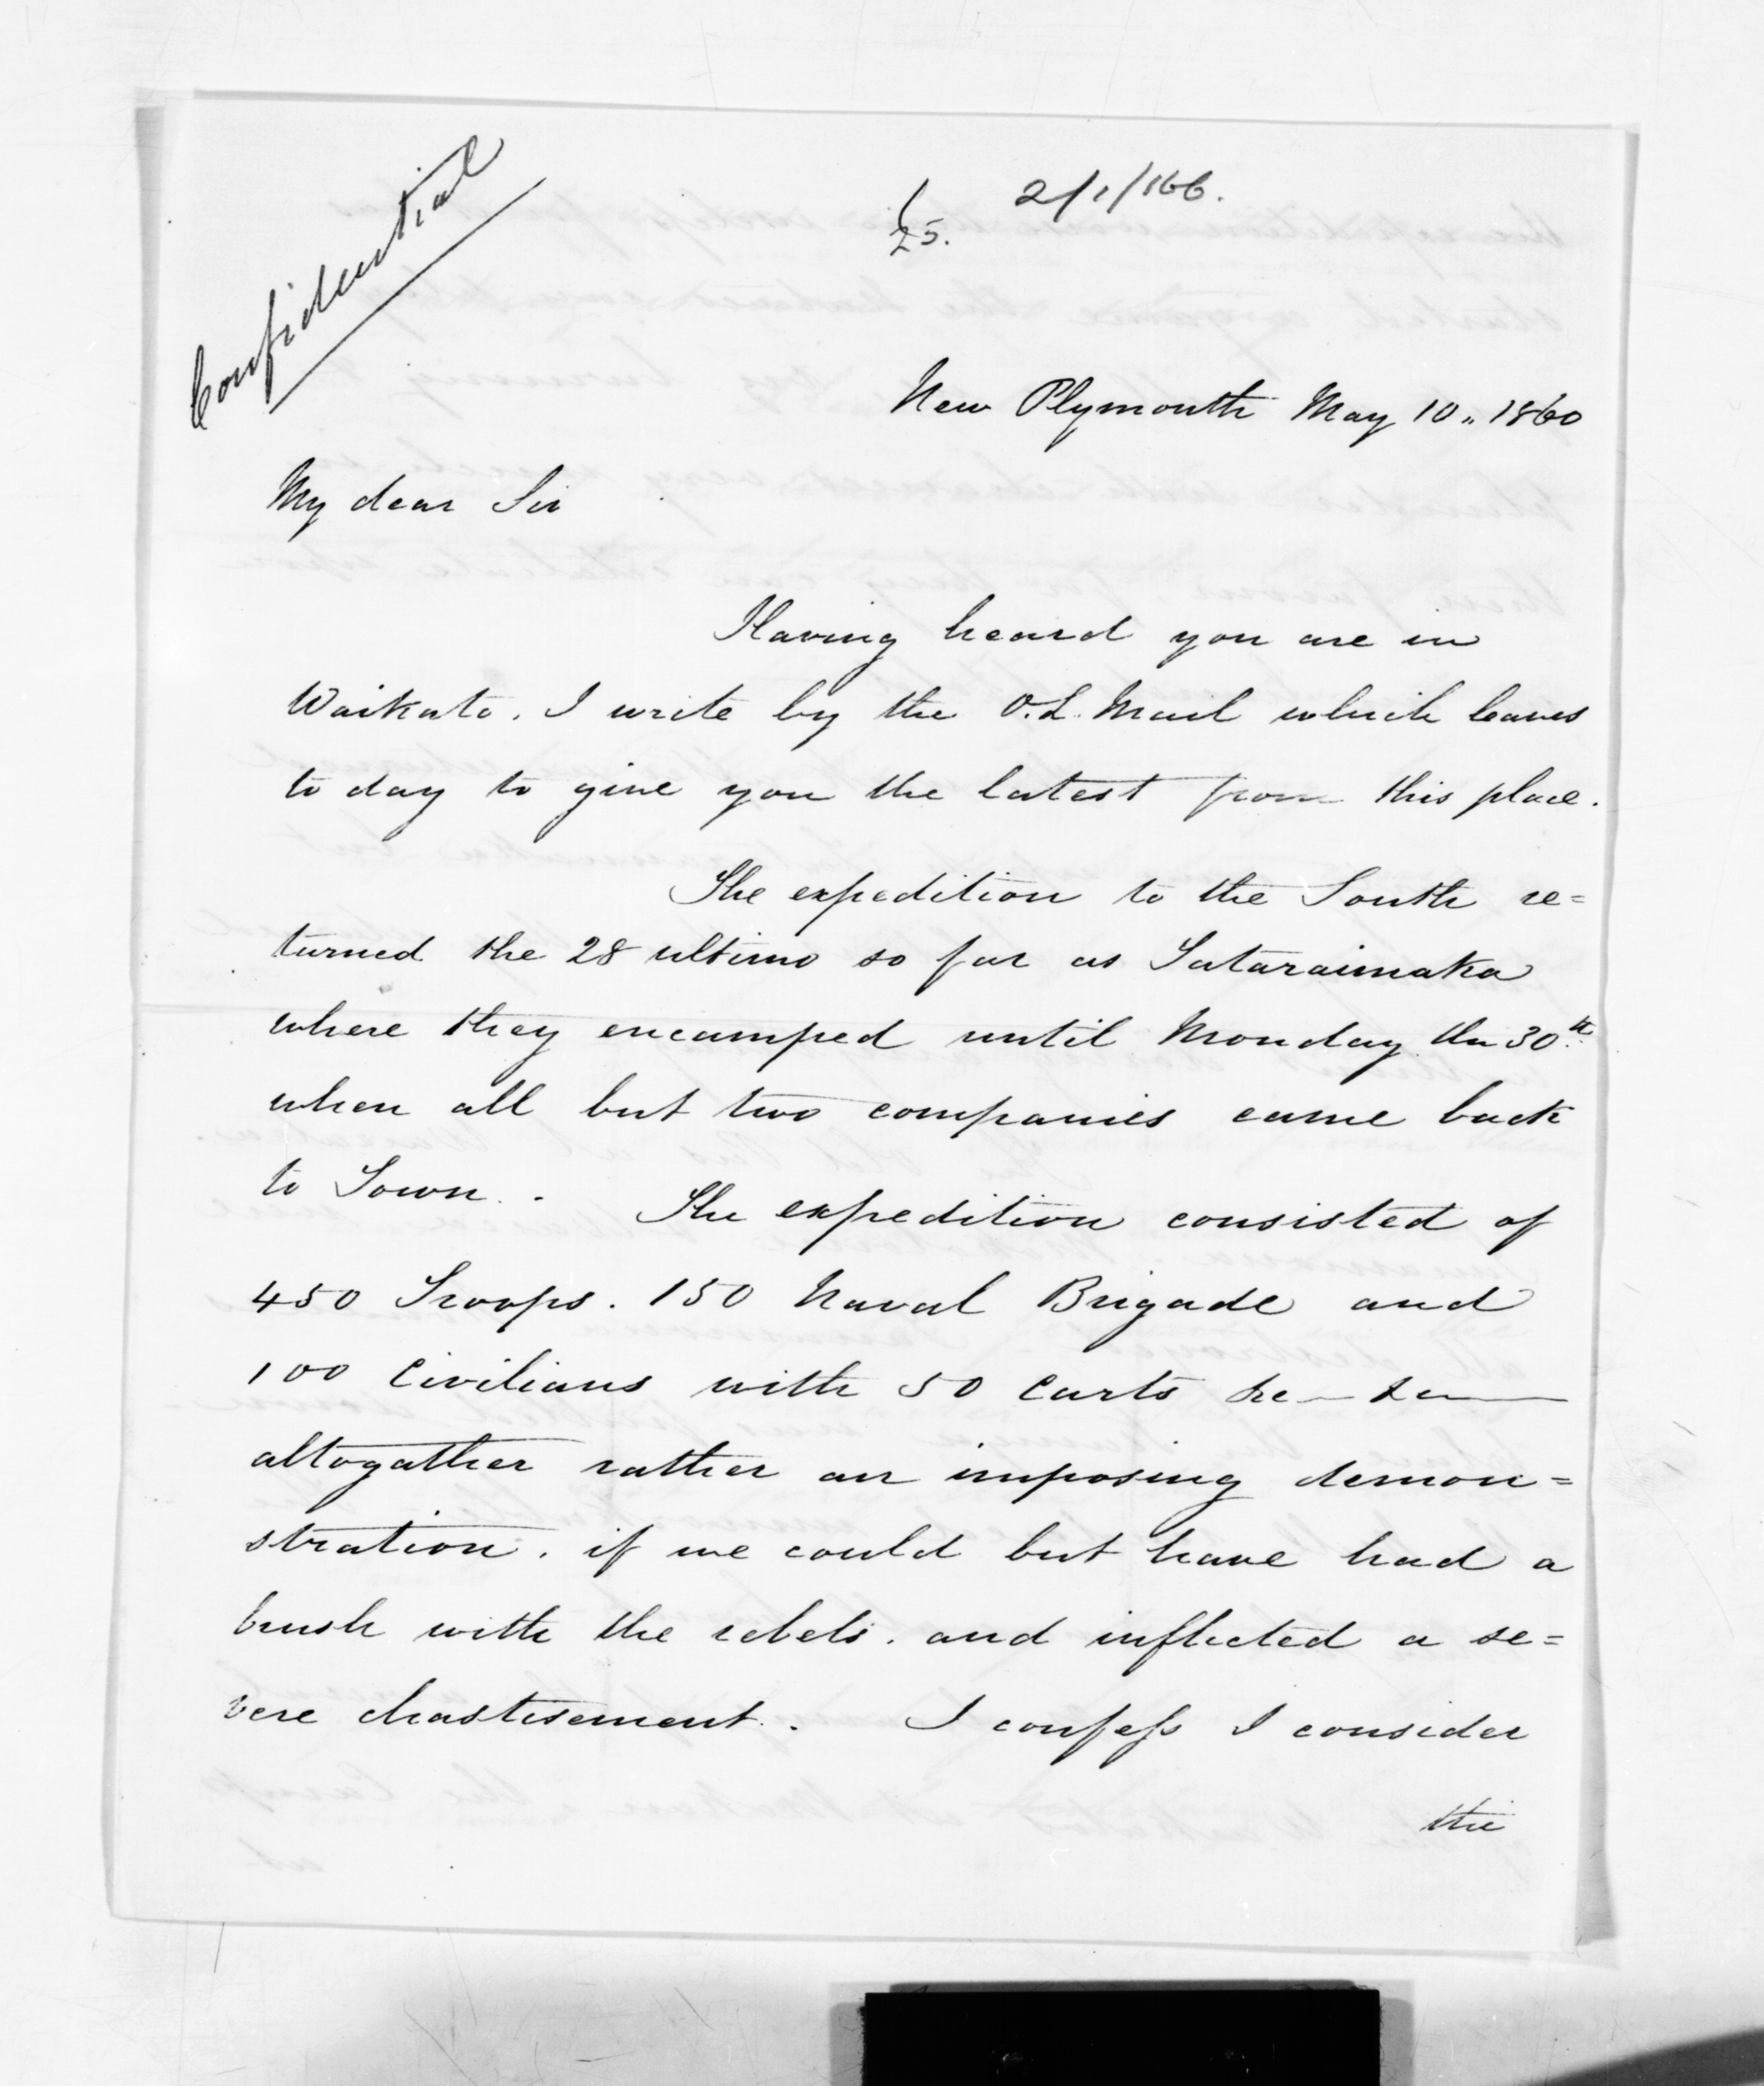 Confidential
2/1/166.
25.
New Plymouth May 10,, 1860
My dear Sir
Having heard you are in
Waikato. I write by the O.L. Mail which leaves
to day to give you the latest from this place.
The expedition to the South re=
turned the 28 ultimo so far as Tataraimaka
where they encamped until Monday the 30th
when all but two companies came back
to Town. The expedition consisted of
450 Troops. 150 Naval Brigade and
100 Civilians with 50 Carts
altogather rather an imposing demon=
stration. if we could but have had a
brush with the rebels. and inflicted a se=
vere chastisement. I confess I consider
the